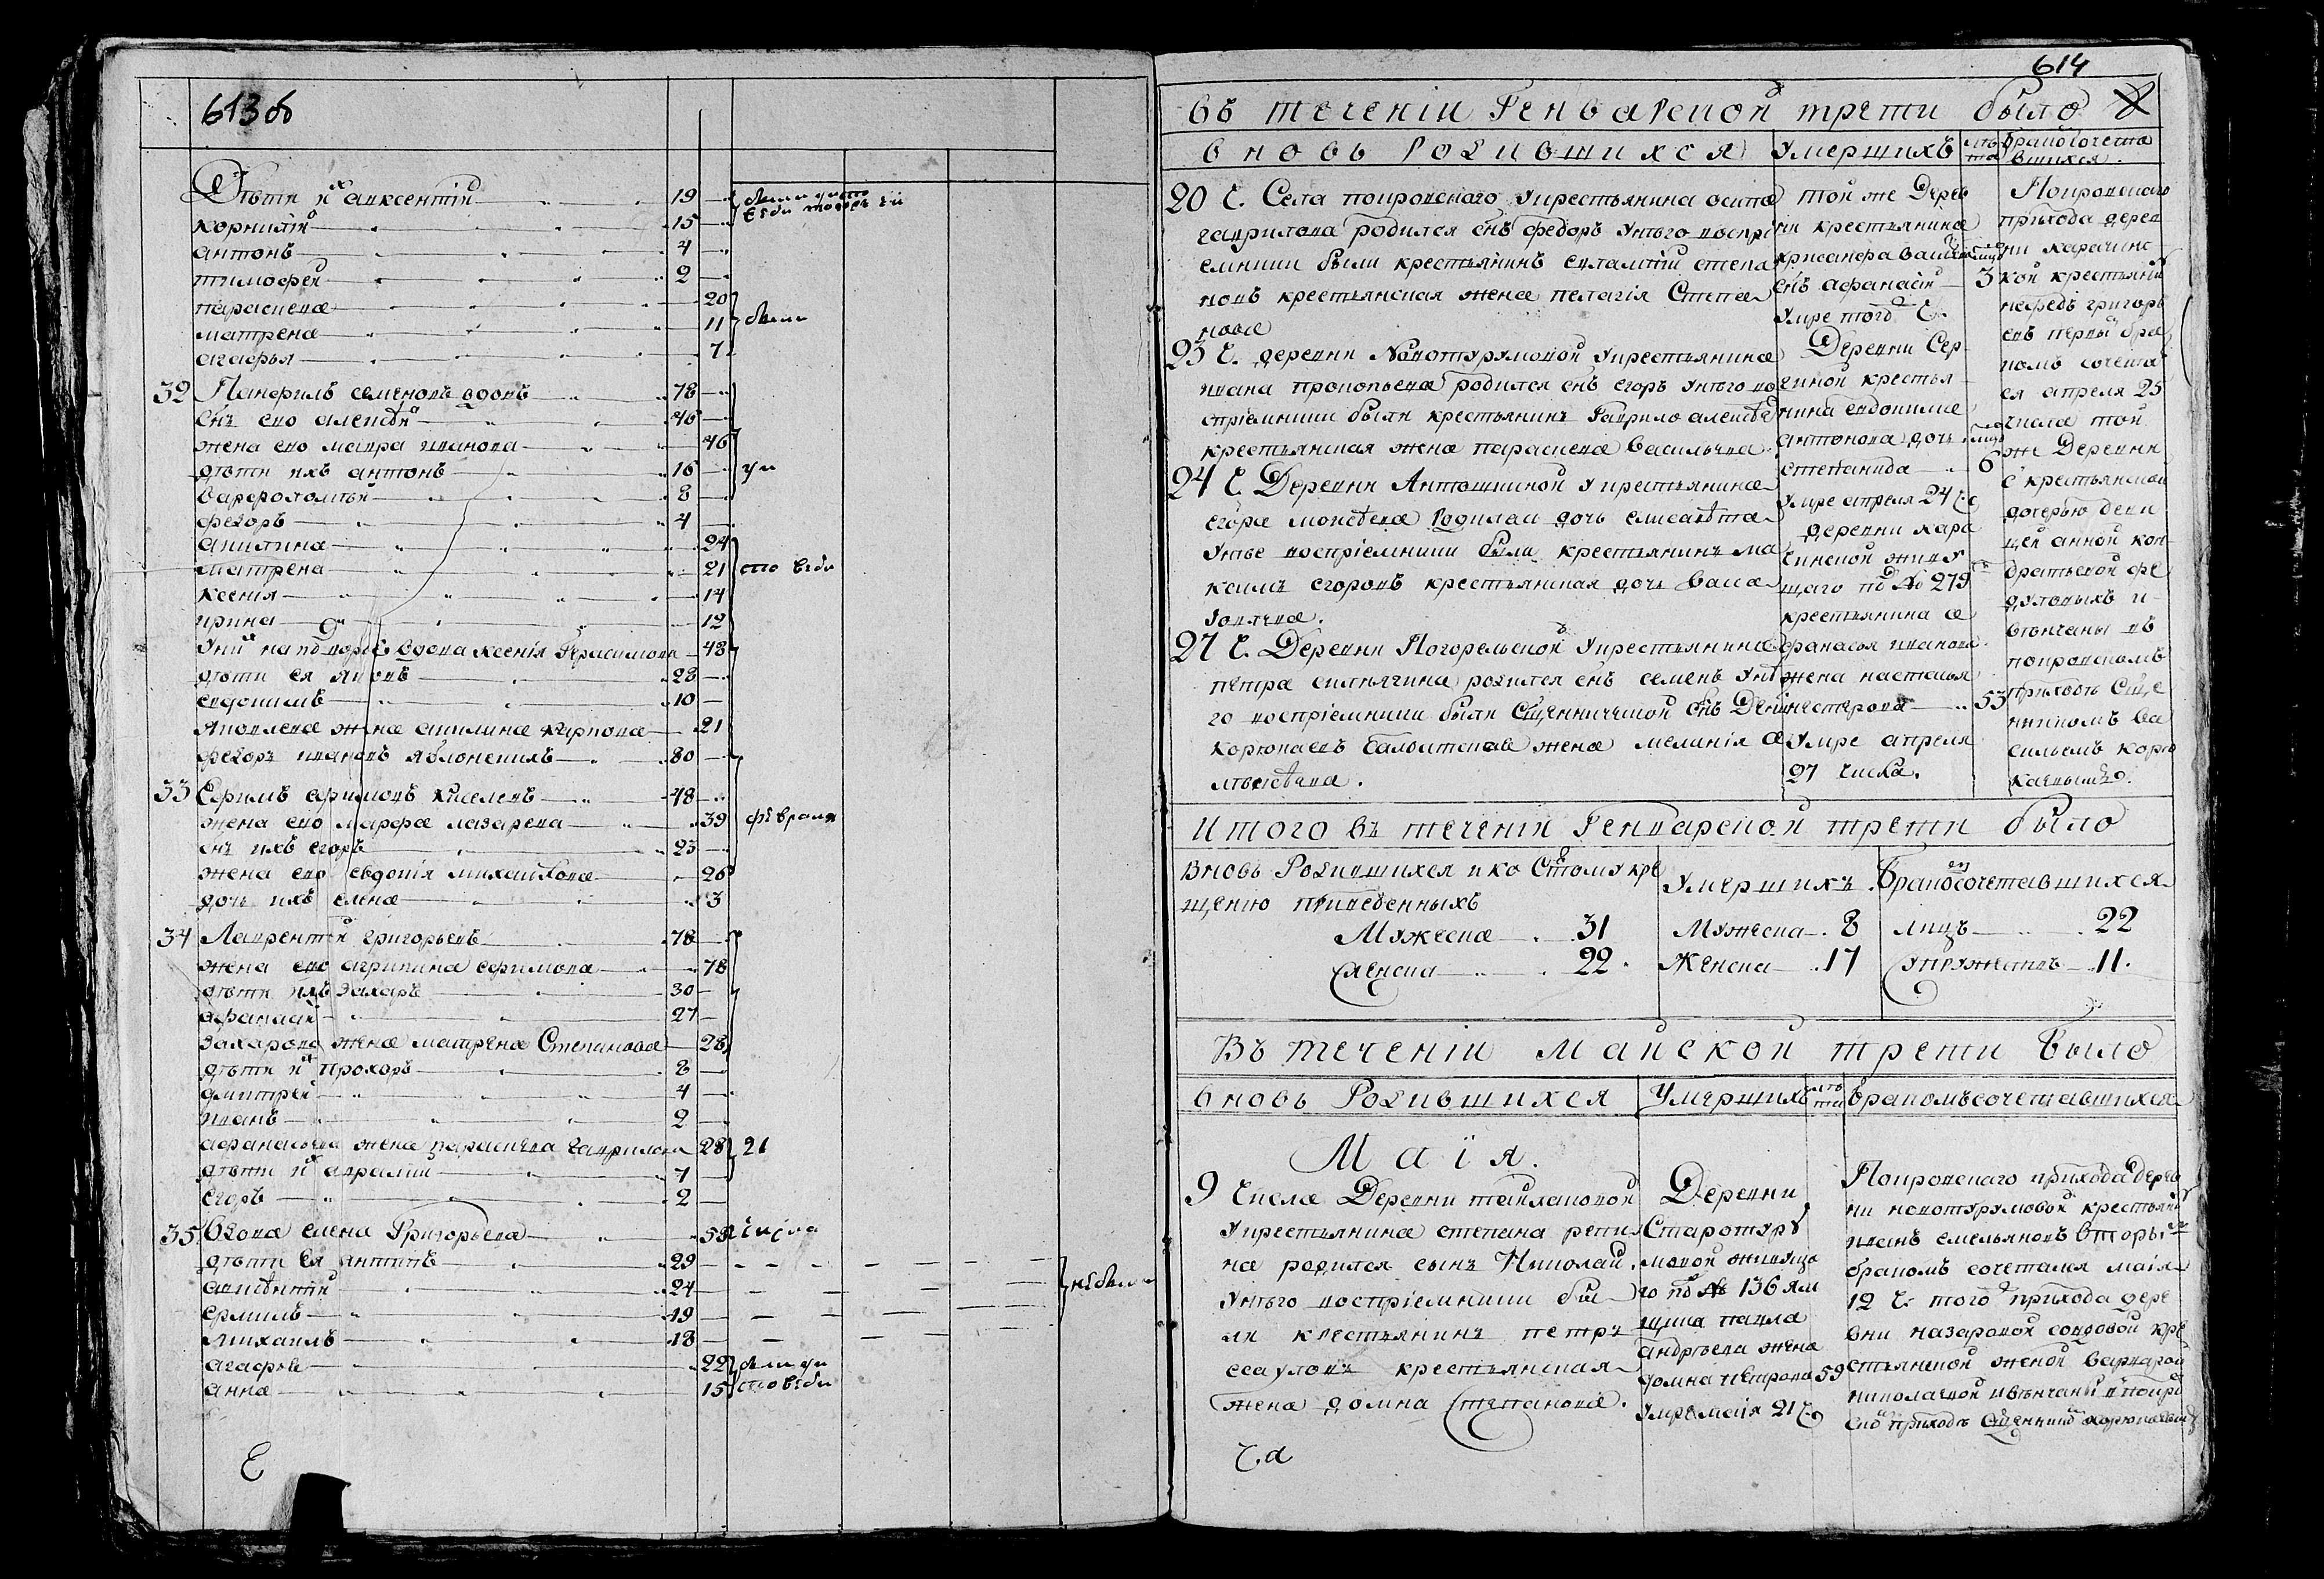 613об
Дѣти ихъ авксентій 19
корнилій 15
антонъ 4
тимофей 2
параскева 20
матрена 11 были
агафья 7
32 Панфилъ семеновъ вдовъ 78
снъ ево алексѣй 46
жена ево мавра иванова 46
дѣти ихъ антонъ 16
варфоломѣй 8
федоръ 4
акилина 24
матрена 21
ксенія 14
ирина 12
вдова ксенія Герасимова 48
дѣти ея яковъ 28
евдокимъ 10
яковлева жена акилина карпова 21
федоръ ивановъ яблонскихъ 80
33 Ефимъ афимовъ киселевъ 48
жена ево марфа лазарева 39 февраля
снъ ихъ егоръ 23
жена ево евдокія михайлова 26
дочь ихъ елена 3
34 Лаврентей григорьевъ 78
жена ево агрипина ефимова 78
дѣти ихъ захаръ 30
афанасій 27
Захарова жена матрена Степанова 28
дѣти ихъ прохоръ 8
дмитрей 4
иванъ 2
афанасьева жена параскева гаврилова 28 21
дѣти ихъ авраамъ 7
егоръ 2
35 Вдова елена Григорьева 59
дѣти ея антипъ 29
авксентій 24 не были
ермилъ 19
михаилъ 18
агафья 22
анна 15
614
въ теченіи Генварской трети было
вновь родившихся
20 ч. Села покровскаго у крестьянина осипа
гаврилова родился снъ федоръ у него воспрі
емники были крестьянинъ евлампій степа
новъ крестьянская жена пелагія Степа
нова
23 ч. деревни Новотурумовой у крестьянина
ивана прокопьева родился снъ егоръ у него во
спріемники были крестьянинъ Гаврило алексѣевъ
крестьянская жена параскева васильева
24 ч. Деревни Антошкиной у крестьянина
егора моисѣева родилась дочь елисавета
у нее воспріемники были крестьянинъ ма
ксимъ егоровъ крестьянская дочь васса
27 ч. Деревни Погорельской у крестьянина
петра силнягина родился снъ семенъ у не
го воспріемники были Сщенническій снъ
корюкаевъ жена меланія а
лексѣевна.
умершихъ лѣта
той же Дерев
ни крестьянина
крисанфа
снъ афанасій 3
умре тогожъ ч.
Деревни Сер
гиной крестья
нина евдокима
антонова дочь
степанида 6
умре апреля 24 ч.
деревни кара
чинской живу
щаго подъ № 279
крестьянина а
фанасья иванова
жена настасья
нестерова 53
умре апреля
27 числа.
бракомъ сочета
вшихся.
Покровскаго
прихода дерев
ни карачинс
кой крестьянинъ
нефедъ григорь
евъ первы бра
комъ сочетал
ся апреля 25
числа той
же Деревни
с крестьянскою
дочерью деви
цей анной кон
дратьевой
и
вѣнчаны въ
покровскомъ
приходѣ Сще
нникомъ ва
сильемъ корю
каевымъ.
Итого въ теченіи Генварской трети было
Вновь Родившихся и ко Святому кре
щению приведенныхъ
Мужеска 31
Женска 22
Умершихъ
Мужеска 8
Женска 17
бракосочетавшихся
лицъ 22
супружествъ 11.
Въ теченіи Майской трети было
вновь Родившихся Умершихъ лѣта бракомъ сочетавшихся
Маія.
9 Числа Деревни
у крестьянина степана репи
на родился сынъ Николай.
у него воспріемники бы
ли крестьянинъ петръ
есауловъ крестьянская
жена домна Степанова.
Деревни
Старотуру
мовой живуща
го подъ № 136 ям
щика павла
андрѣева жена
домна петрова 59
умре маія 21 ч.
Покровскаго прихода дерев
ни новотурумовой крестьянинъ
иванъ емельяновъ вторы
бракомъ сочетался маія
12 ч. того прихода дере
вни назаровой со вдовой кре
стьянской женой варварой
николаевой и вѣнчаны въ покров
ско приходѣ Сщенникомъ корюкаевымъ